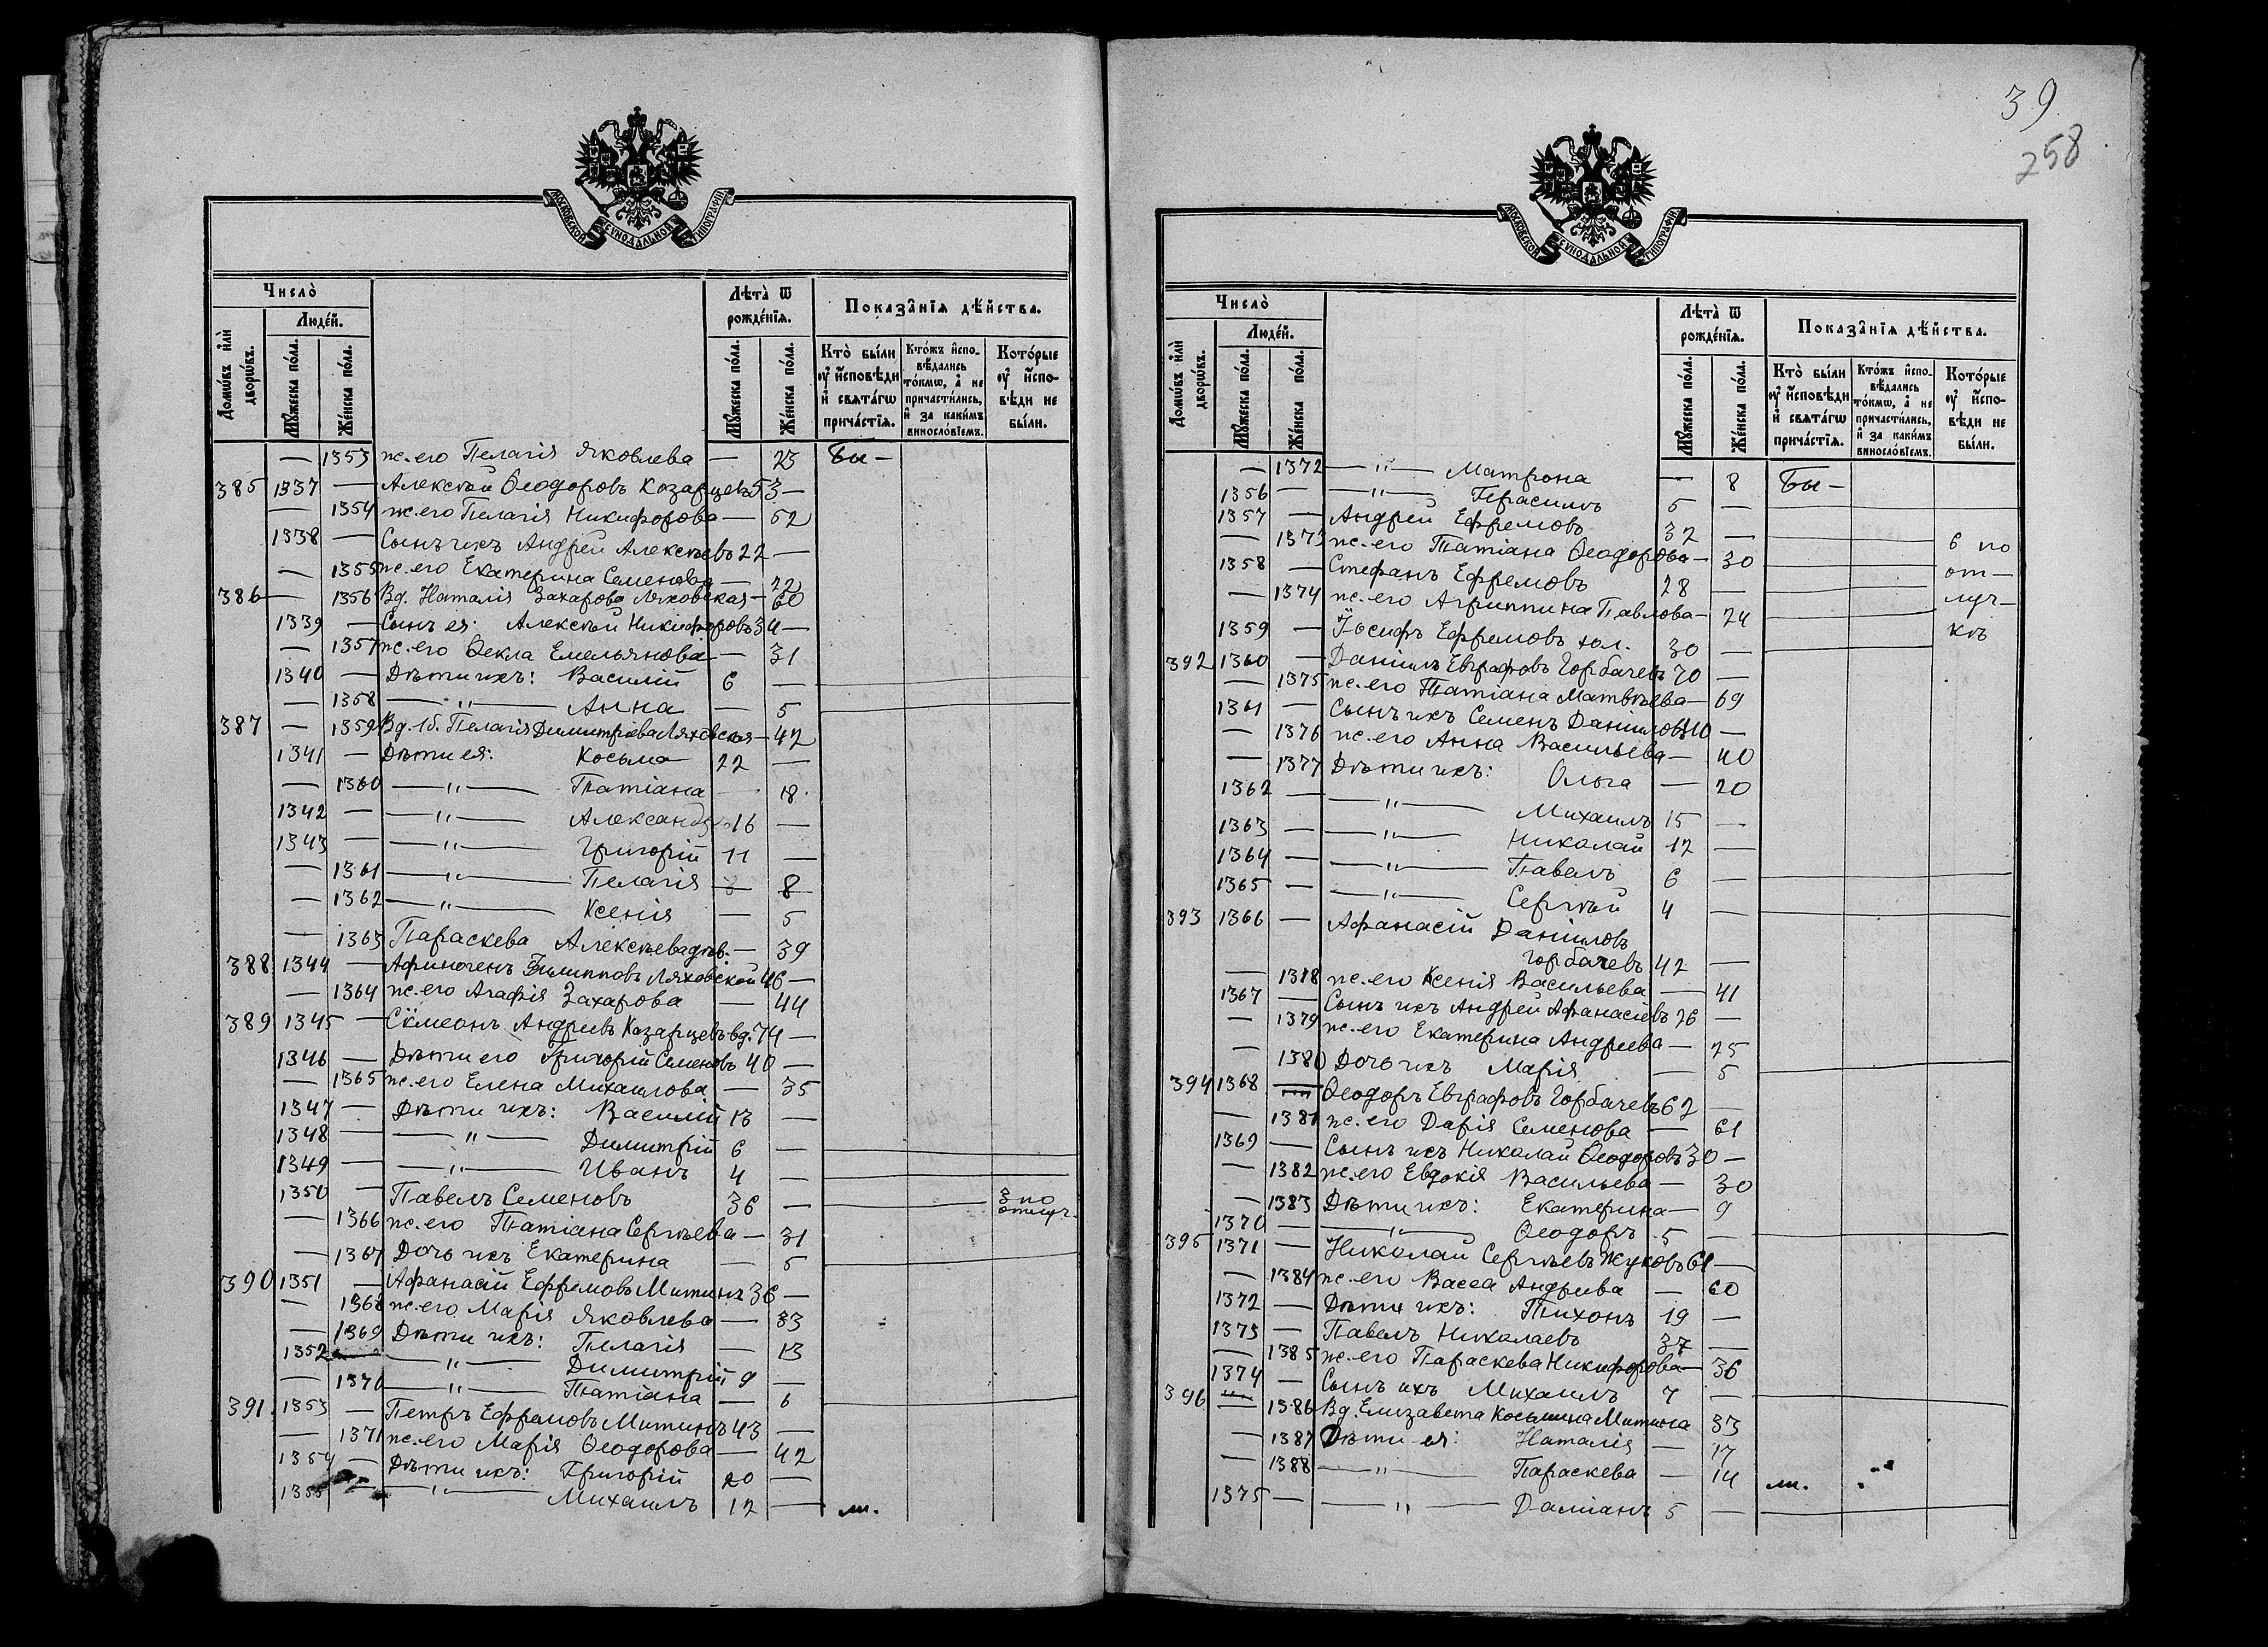 МОСКОВСКОЙ СѴНОДАЛЬНОЙ ТИПОГРАФІИ.
Число̀
Людей.
Домѡвъ и҆лѝ дворѡвъ.
Мꙋжеска по́ла.
Же́нска по́ла.
Лѣта̀ ѿ рожде́нїѧ.
Мꙋжеска по́ла.
Же́нска по́ла.
Показа̂нїѧ дѣйства.
Кто̀ бы́ли ᲂу҆ и҆сповѣди и҆ свѧта́гѡ причастїѧ.
Кто́жъ и҆спо-вѣдались то́кмѡ, а҆ не причасти́лись, и҆ за каки́мъ винословїемъ.
Кото́рые ᲂу҆ и҆спо-вѣди не бы́ли.
— 1353 ж. его Пелагія Яковлева — 23 Бы —
385 1337 — Алексѣй Ѳеодоровъ Козарцевъ 53 —
— 1354 ж. его Пелагія Никифорова — 52
1338 — Сынъ ихъ Андрей Алексѣевъ 22 —
— 1355 ж. его Екатерина Семенова — 22
386 — 1356 Вд. Наталія Захарова Ляховская — 60
1339 — Сынъ ея: Алексѣй Никифоровъ 34 —
— 1357 ж. его Ѳекла Емельянова — 31
1340 — Дѣти ихъ: Василій 6 —
— 1358 — " — Анна — 5
387 — 1359 Вд. 1б. Пелагія Димитріева Ляховская — 42
1341 — Дѣти ея: Косьма 22 —
— 1360 — " — Татіана — 18
1342 — — " — Александръ 16 —
1343 — — " — Григорій 11 —
— 1361 — " — Пелагія — 8
— 1362 — " — Ксенія — 5
— 1363 Параскева Алексѣева дѣв. — 39
388 1344 — Афиногенъ Филипповъ Ляховской 46 —
— 1364 ж. его Агафія Захарова — 44
389 1345 — Сѵмеонъ Андреевъ Казарцевъ вд. 74 —
1346 — Дѣти его Григорій Семеновъ 40 —
— 1365 ж. его Елена Михаилова — 35
1347 — Дѣти ихъ: Василій 13 —
1348 — — " — Димитрій 6 —
1349 — — " — Иванъ 4 —
1350 — Павелъ Семеновъ 36 — 3 по отлуч.
— 1366 ж. его Татіана Сергѣева — 31
— 1367 Дочь ихъ Екатерина — 5
390 1351 — Афанасій Ефремовъ Митинъ 36 —
— 1368 ж. его Марія Яковлева — 33
— 1369 Дѣти ихъ: Пелагія — 13
1352 — " — Димитрій 9 —
— 1370 — " — Татіана — 6
391. 1353 — Петръ Ефремовъ Митинъ 43 —
— 1371 ж. его Марія Ѳеодорова — 42
1354 — Дѣти ихъ: Григорій 20 —
1355 — — " — Михаилъ 12 — ли.
39
258
МОСКОВСКОЙ СѴНОДАЛЬНОЙ ТИПОГРАФІИ.
Число̀
Людей.
Домѡвъ и҆лѝ дворѡвъ.
Мꙋжеска по́ла.
Же́нска по́ла.
Лѣта̀ ѿ рожде́нїѧ.
Мꙋжеска по́ла.
Же́нска по́ла.
Показа̂нїѧ дѣйства.
Кто̀ бы́ли ᲂу҆ и҆сповѣди и҆ свѧта́гѡ причастїѧ.
Кто́жъ и҆спо-вѣдались то́кмѡ, а҆ не причасти́лись, и҆ за каки́мъ винословїемъ.
Кото́рые ᲂу҆ и҆спо-вѣди не бы́ли.
— 1372 — " — Матрона — 8 Бы —
1356 — — " — Герасимъ 5 —
1357 — Андрей Ефремовъ 32 — 6 по
— 1373 ж. его Татіана Ѳеодорова — 30 от-
1358 — Стефанъ Ефремовъ 28 — луч-
— 1374 ж. его Агриппина Павлова — 24 кѣ
1359 — Іосифъ Ефремовъ хол. 30 —
392 1360 — Даніилъ Евграфовъ Горбачевъ 70 —
— 1375 ж. его Татіана Матвѣева — 69
1361 — Сынъ ихъ Семенъ Даниловъ 40 —
— 1376 ж. его Анна Васильева — 40
— 1377 Дѣти ихъ: Ольга — 20
1362 — — " — Михаилъ 15 —
1363 — — " — Николай 12 —
1364 — — " — Павелъ 6 —
1365 — — " — Сергѣй 4 —
393 1366 — Афанасій Даниловъ
Горбачевъ 42 —
— 1378 ж. его Ксенія Васильева — 41
1367 — Сынъ ихъ Андрей Афанасіевъ 26 —
— 1379 ж. его Екатерина Андреева — 25
— 1380 Дочь ихъ Марія — 5
394 1368 — Ѳеодоръ Евграфовъ Горбачевъ 62 —
— 1381 ж. его Дарія Семенова — 61
1369 — Сынъ ихъ Николай Ѳеодоровъ 30 —
— 1382 ж. его Евдокія Васильева — 30
— 1383 Дѣти ихъ: Екатерина — 9
1370 — — " — Ѳеодоръ 5 —
395 1371 — Николай Сергѣевъ Жуковъ 61 —
— 1384 ж. его Васса Андреева — 60
1372 — Дѣти ихъ: Тихонъ 19 —
1373 — Павелъ Николаевъ 37 —
— 1385 ж. его Параскева Никифорова — 36
1374 — Сынъ ихъ Михаилъ 7 —
396 — 1386 Вд. Елизавета Косьмина Митина 33
— 1387 Дѣти ея: Наталія — 17
— 1388 — " — Параскева — 14 ли.
1375 — — " — Даміанъ 5 —